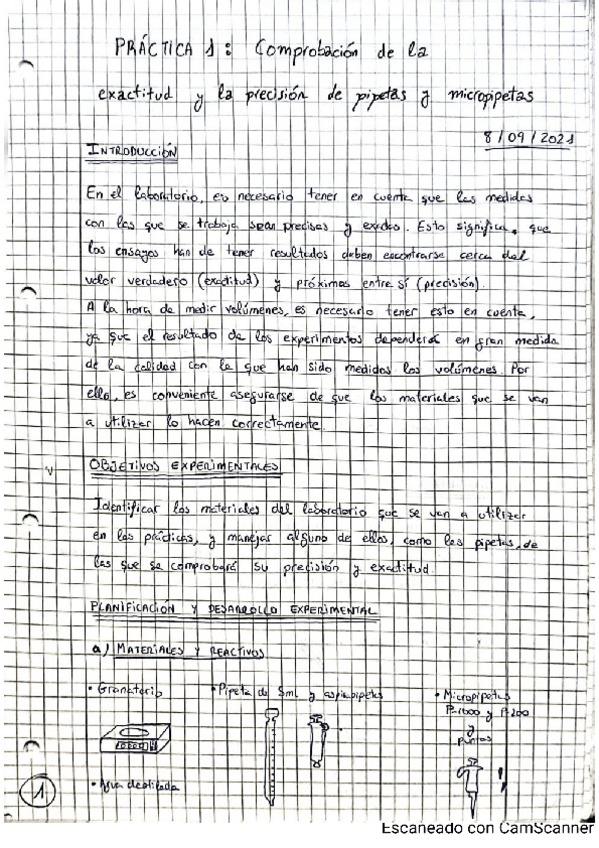 PRÁCTICA 1: Comprobación de la
exactitud y la precisión de pipetas y micropipetas
8/09/2021
INTRODUCCIÓN
En el laboratorio, es necesario tener en cuenta que las medidas
con las que se trabaja sean precisas y exactas. Esto significa, que
los ensayos han de tener resultados deben encontrarse cerca del
valor verdadero (exactitud) y próximos entre sí (precisión).
A la hora de medir volúmenes, es necesario tener esto en cuenta,
ya que el resultado de los experimentos dependerá en gran medida
de la calidad con la que han sido medidos los volúmenes. Por
ello, es conveniente asegurarse de que los materiales que se van
a utilizar lo hacen correctamente.
OBJETIVOS EXPERIMENTALES
Identificar los materiales del laboratorio que se van a utilizar
en las prácticas, y manejar alguno de ellos, como las pipetas, de
las que se comprobará su precisión y exactitud.
PLANIFICACIÓN Y DESARROLLO EXPERIMENTAL
a) MATERIALES Y REACTIVOS
• Granatario • Pipeta de 5ml y aspirapipetas • Micropipetas
P-1000 y P-200
y
puntas
• Agua destilada
1
Escaneado con CamScanner